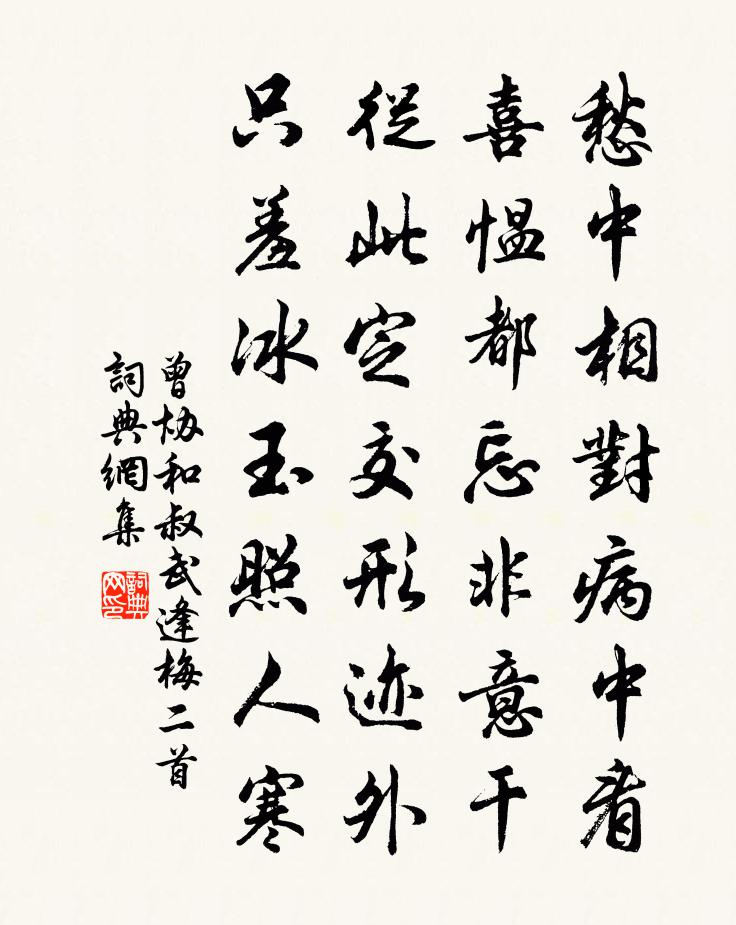 愁中相對病中看
喜愠都忘非意干
從此定交形迹外
只羞冰玉照人寒
曾協和叔武逢梅二首
詞典網集
詞典網印